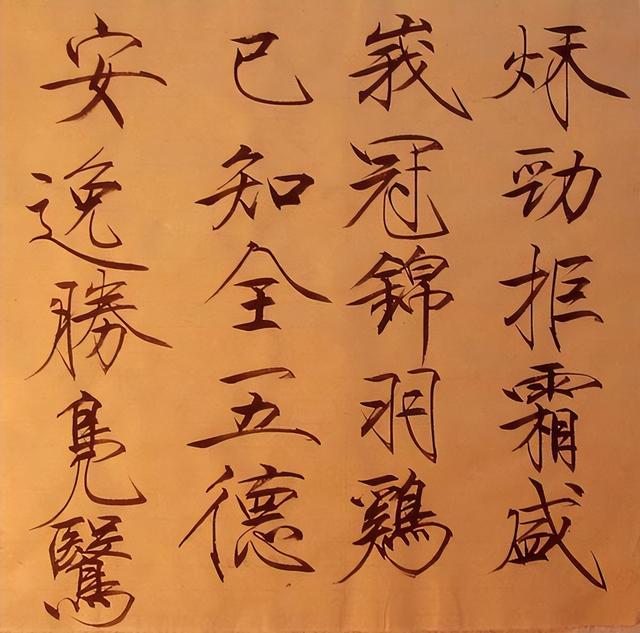 烁勁拒霜盛
峩冠錦羽鷄
已知全五德
安逸勝鳧鷖